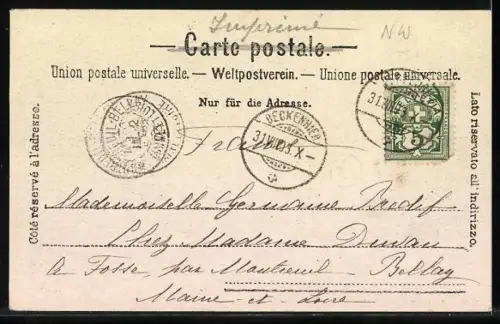 Imprimé
NW
Carte postale.
Union postale universelle. — Weltpostverein. — Unione postale universale.
Nur für die Adresse.
Côté réservé à l'adresse.
Lato riservato all'indirizzo.
BECKENRIED
31.VII.03.X-
31.VII.03
France
Mademoiselle Germaine Bredif
Chez Madame Duvau
à Fosse, par Montreuil-Bellay
Maine-et-Loire